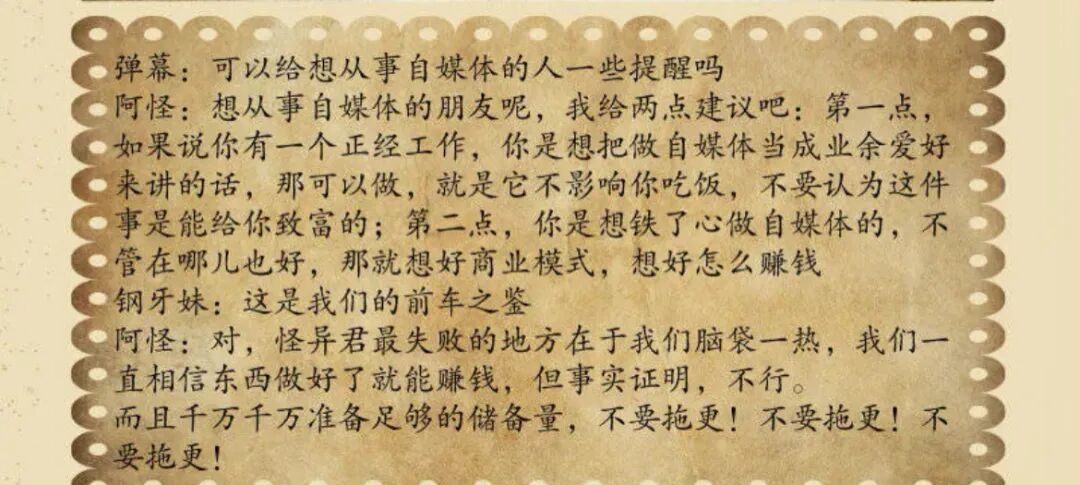 弹幕：可以给想从事自媒体的人一些提醒吗
阿怪：想从事自媒体的朋友呢，我给两点建议吧：第一点，
如果说你有一个正经工作，你是想把做自媒体当成业余爱好
来讲的话，那可以做，就是它不影响你吃饭，不要认为这件
事是能给你致富的；第二点，你是想铁了心做自媒体的，不
管在哪儿也好，那就想好商业模式，想好怎么赚钱
钢牙妹：这是我们的前车之鉴
阿怪：对，怪异君最失败的地方在于我们脑袋一热，我们一
直相信东西做好了就能赚钱，但事实证明，不行。
而且千万千万准备足够的储备量，不要拖更！不要拖更！不
要拖更！